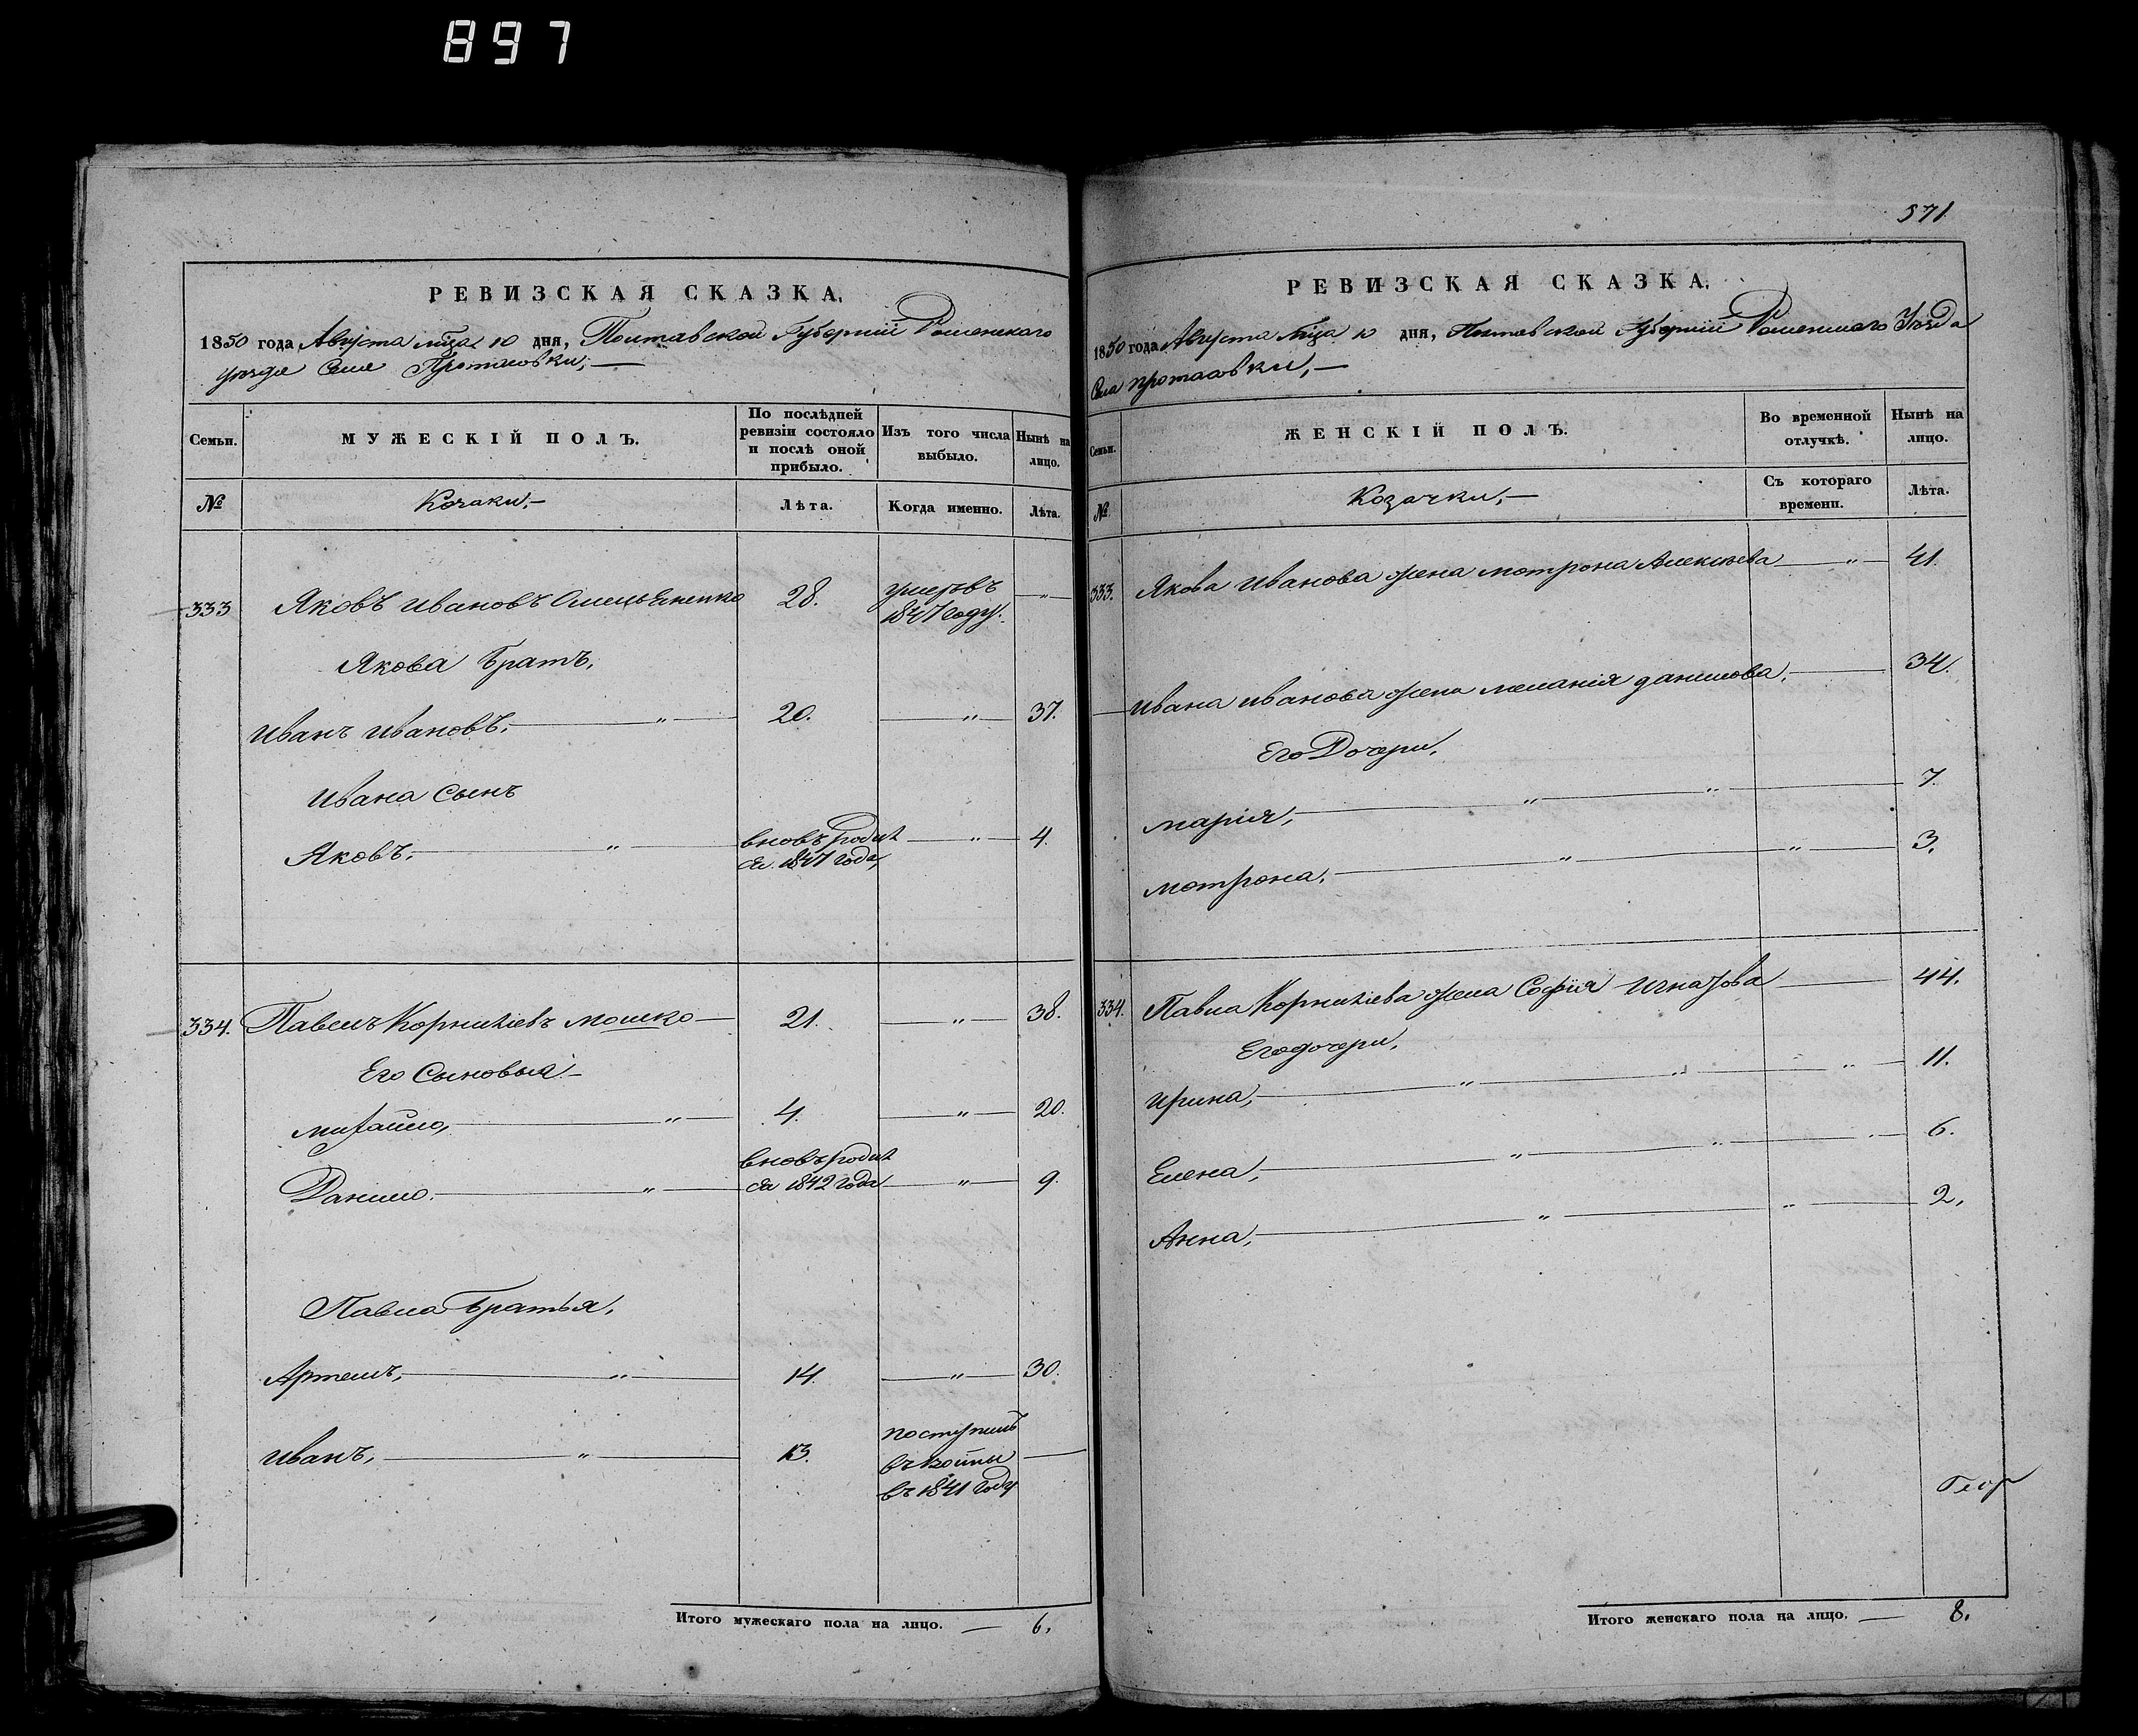 897
РЕВИЗСКАЯ СКАЗКА.
1850 года Августа мца 10 дня, Полтавской Губерніи Роменскаго
уезда Села Протасовки,
Семьи.
МУЖЕСКІЙ ПОЛЪ.
По послѣдней ревизіи состояло и послѣ оной прибыло.
Изъ того числа выбыло.
Нынѣ на лицо.
№
Козаки,
Лѣта.
Когда именно.
Лѣта.
333 Яковъ Ивановъ 28. умеръ въ 1847 году.
Якова Братъ,
Иванъ Ивановъ, " 20. " 37.
Ивана Сынъ
Яковъ, " вновь родил ся 1847 года, " 4.
334. Павелъ Корнилiевъ Мошко 21. " 38.
Его Сыновья
Михайло, " 4. " 20.
Данило. " вновь родил ся 1842 года " 9.
Павла Братья,
Артемъ, " 14. " 30.
Иванъ, " 13. поступилъ
въ 1841 году
Итого мужескаго пола на лицо. — 6.
571
РЕВИЗСКАЯ СКАЗКА.
1850 года Августа мца 10 дня, Полтавской Губерніи Роменскаго Уезда
Села Протасовки,
Семьи.
ЖЕНСКІЙ ПОЛЪ.
Во временной отлучкѣ.
Нынѣ на лицо.
№
Козачки,
Съ котораго времени.
Лѣта.
333. Якова Иванова жена Мотрона Алексѣева " 41.
Ивана Иванова жена Меланія Данилова, 34.
Его Дочери,
Марія, " " 7.
Мотрона, " " 3.
334. Павла Корнилiева жена Софія Игнатова 44.
Его дочери,
Ирина, " " " 11.
Елена, " " " 6.
Анна, " " 2,
Геор
Итого женскаго пола на лицо. — 8.